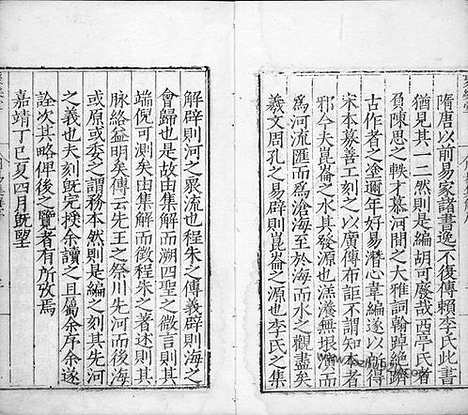 隋唐以前易家諸書逸不復傳賴李氏此書
猶見其一二然則是編胡可廢哉西亭氏者
負陳思之軼才慕河間之大雅詞翰踔絶躋
古作者之並邇年好易潛心韋編遂以所得
宋本募善工刻之以廣傳布詎不謂知本者
邪今夫崑崙之水其發源也洋洋無垠演而
爲河流匯而爲滄海至於海而水之觀盡矣
羲文周孔之易辟則崑崙之源也李氏之集
解辟則河之衆流也程朱之傳義辟則海之
會歸也是故由集解而溯四聖之微言則其
端倪可測矣由集解而徵程朱之著述則其
脉絡益明矣傳云先王之祭川先河而後海
或原或委之謂務本然則是編之刻其先河
之義也夫刻旣完授余讀之且屬余序余遂
詮次其略俾後之覽者有所攷焉
嘉靖丁巳夏四月旣望